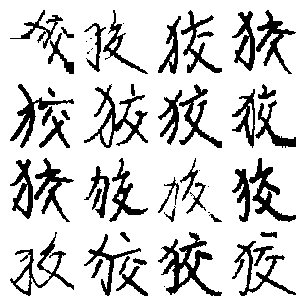 狡狡狡狡
狡狡狡狡
狡狡狡狡
狡狡狡狡